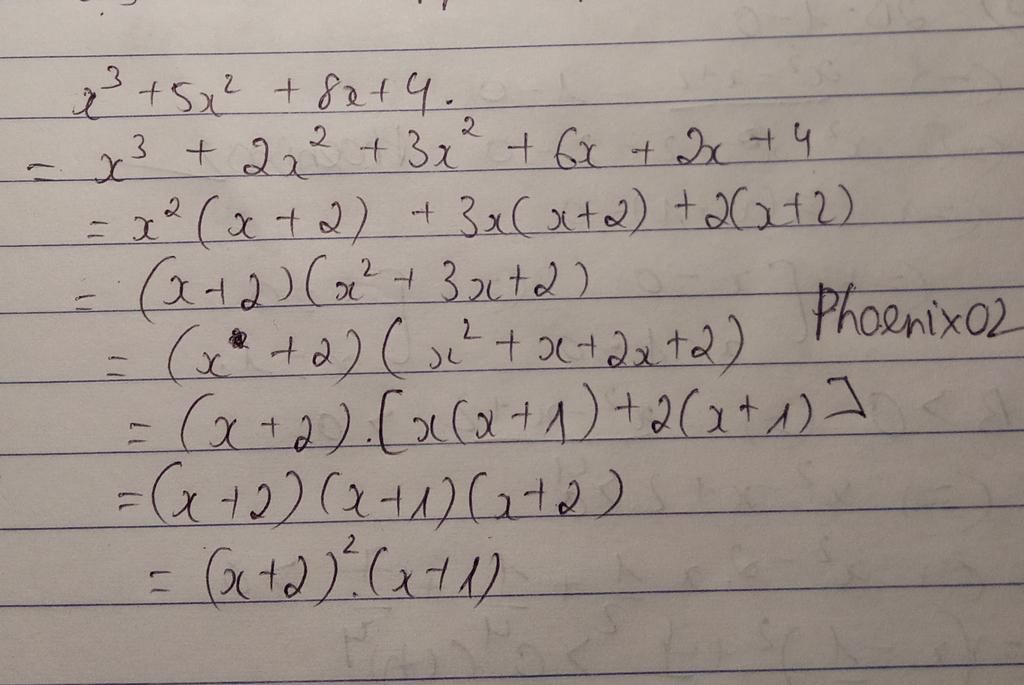 x³ + 5x² + 8x + 4.
= x³ + 2x² + 3x² + 6x + 2x + 4
= x² (x + 2) + 3x(x+2) + 2(x+2)
= (x+2)(x² + 3x+2)
= (x + 2) (x² + x + 2x + 2)
Phoenix02
= (x + 2).[x(x+1) + 2(x+1)]
= (x +2)(x+1)(x+2)
= (x+2)².(x+1)